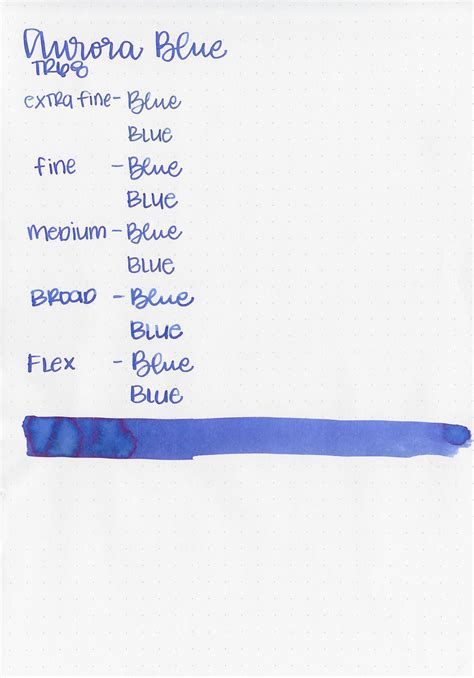 Aurora Blue
TR68
extra fine - Blue
BLUE
fine - Blue
BLUE
medium - Blue
BLUE
BROAD - Blue
BLUE
FLEX - Blue
BLUE